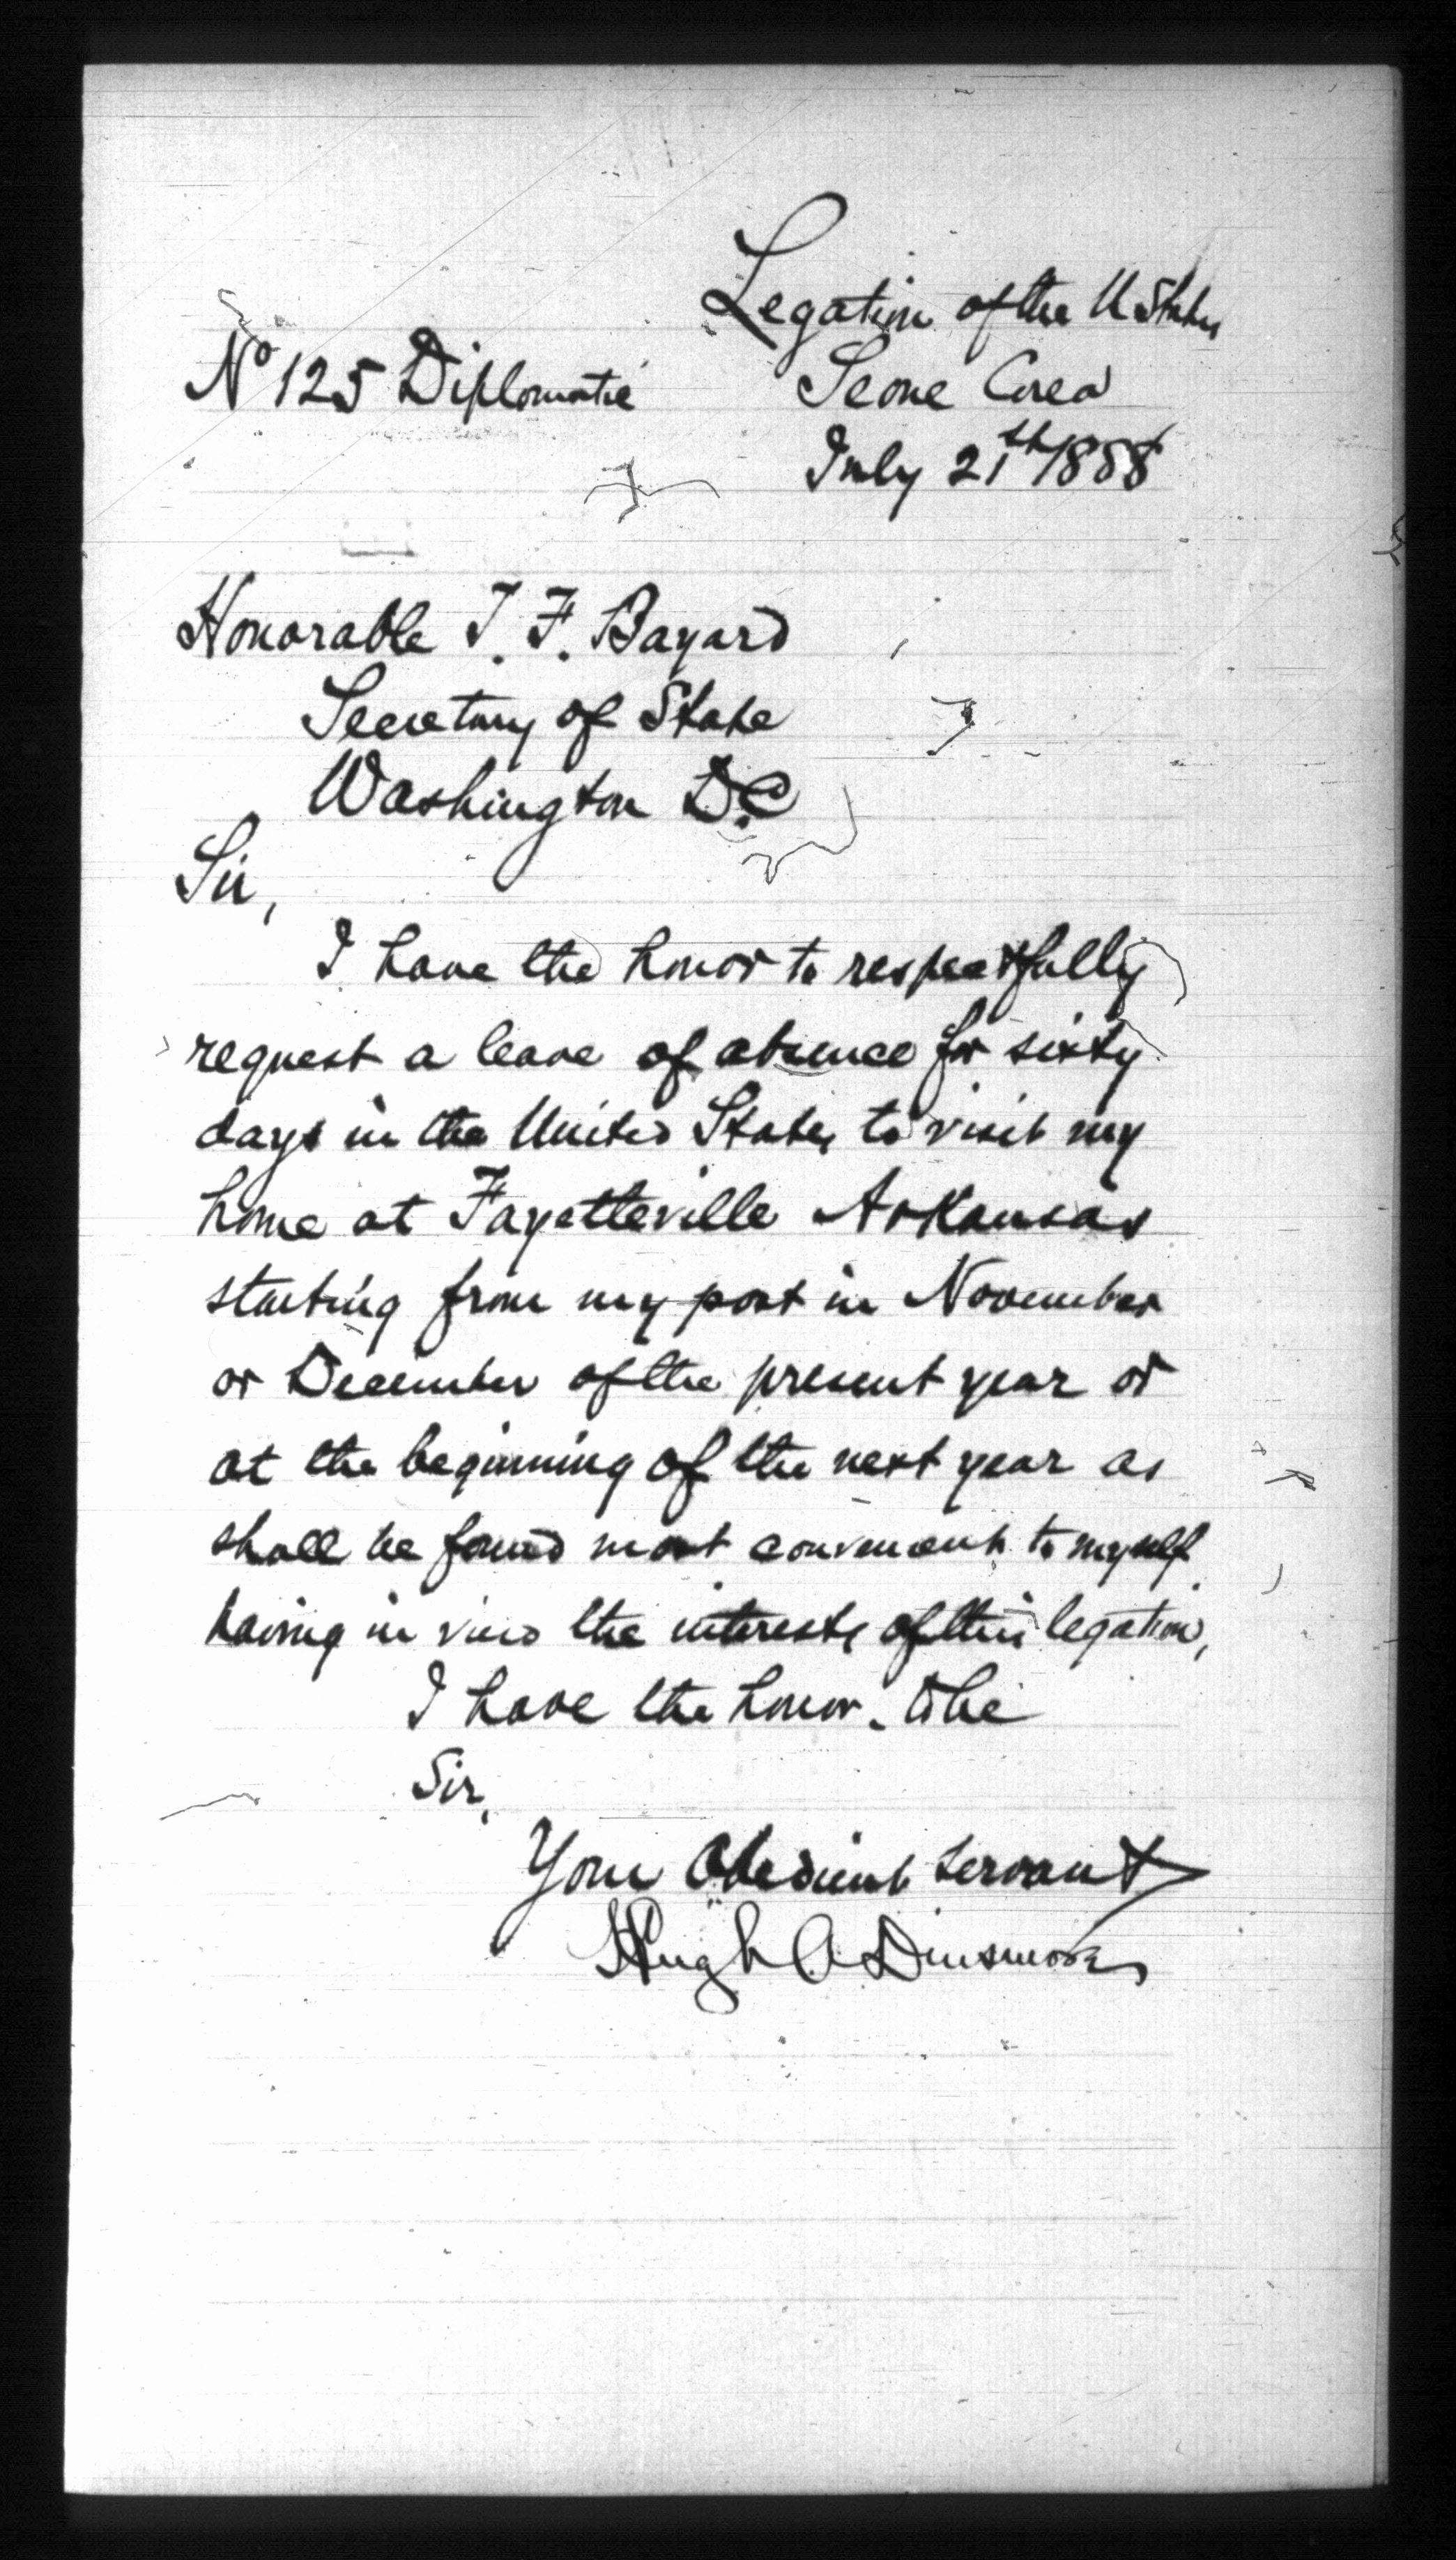 Legation of the U States
No 125 Diplomatic
Seoul Corea
July 21th 1888
Honorable T. F. Bayard
Secretary of State
Washington D.C
Sir,
I have the honor to respectfully
request a leave of absence for sixty
days in the United States to visit my
home at Fayetteville Arkansas
starting from my post in November
or December of the present year or
at the beginning of the next year as
shall be found most convenient to myself
having in view the interests of this legation,
I have the honor to be
Sir,
Your Obedient Servant
Hugh A Dinsmore